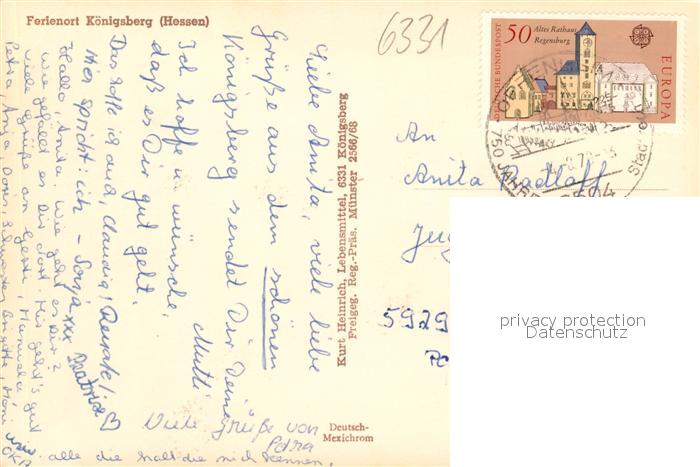 Ferienort Königsberg (Hessen)
6331
50 Altes Rathaus
Regensburg
DEUTSCHE BUNDESPOST
EUROPA
750 JAHRE
Liebe Anita, viele liebe
Grüße aus dem schönen
Königsberg sendet Dir Deine
Mutti
Ich hoffe u. wünsche,
daß es Dir gut geht.
Das hoffe ich auch, Claudia! Renate!
Hier spricht: ich - Sonja xxx Beatrice
Hallo, Anita! Wie geht es Dir?
Wie gefällt es Dir dort. Mir geht's gut
viele Grüße an Manuela
Petra, Anja, Doris, Schwester Brigitte,
Viele Grüße von
Petra
alle die halt die mich kennen,
Kurt Heinrich, Lebensmittel, 6331 Königsberg
Freigeg. Reg.-Präs. Münster 2566/68
Deutsch-
Mexichrom
An
Anita Radloff
5929
privacy protection
Datenschutz